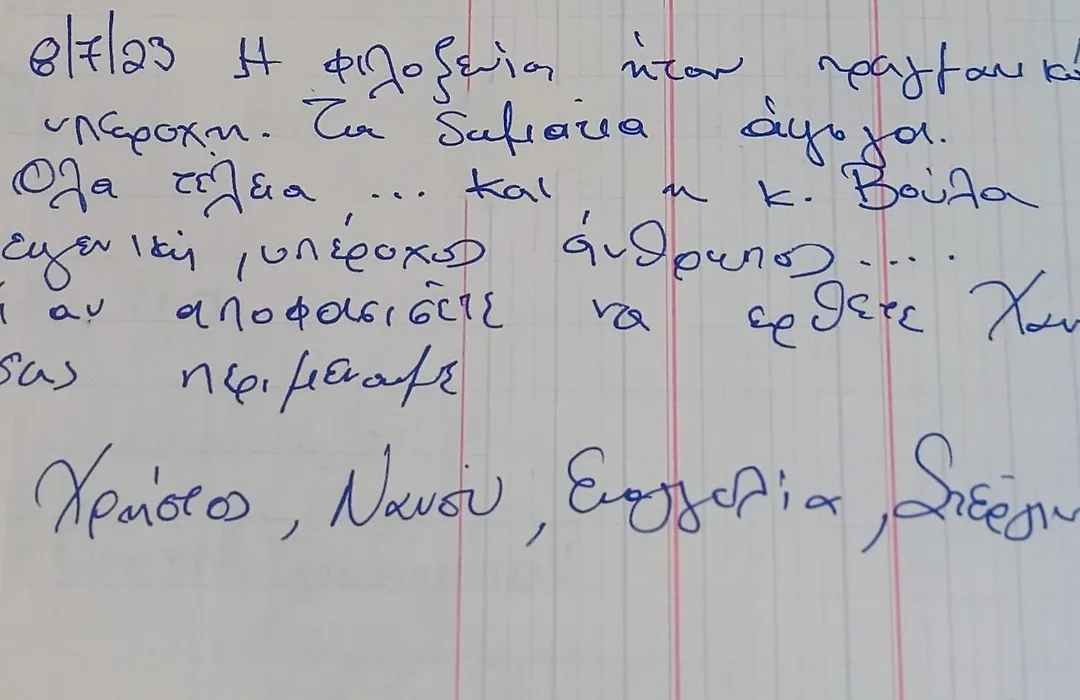 8/7/23 Η φιλοξενία ήταν πραγματικά
υπέροχη. Τα δωμάτια άψογα.
Όλα τέλεια ... και η κ. Βούλα
ευγενική, υπέροχος άνθρωπος ....
αν αποφασίσετε να ερθετε
σας περιμένουμε
Χρήστος, Νανσύ, Ευαγγελία, Στέργιο